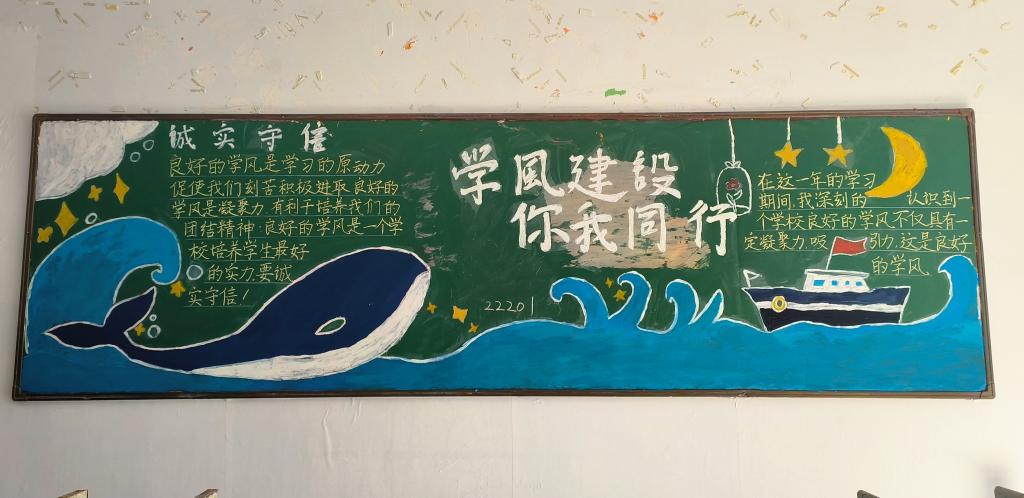 诚实守信
良好的学风是学习的原动力
促使我们刻苦积极进取.良好的
学风是凝聚力.有利于培养我们的
团结精神.良好的学风是一个学
校培养学生最好
的实力.要诚
实守信!
学風建設
你我同行
22201
在这一年的学习
期间,我深刻的 认识到一
个学校良好的学风不仅具有一
定凝聚力.吸 引力.这是良好
的学风